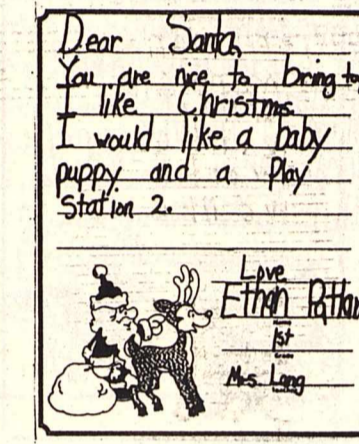 Dear Santa,
You are nice to bring
I like Christms.
I would like a baby
puppy and a Play
Station 2.
Love
Ethan
1st
Mrs. Lang